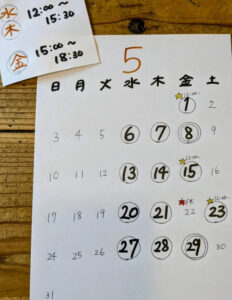 水 12:00〜
木 15:30
金 15:00〜
18:30
5
日 月 火 水 木 金 土
12:00~
1 2
3 4 5 6 7 8 9
12:00~
10 11 12 13 14 15 16
17 18 19 20 21 22 23
24 25 26 27 28 29 30
31